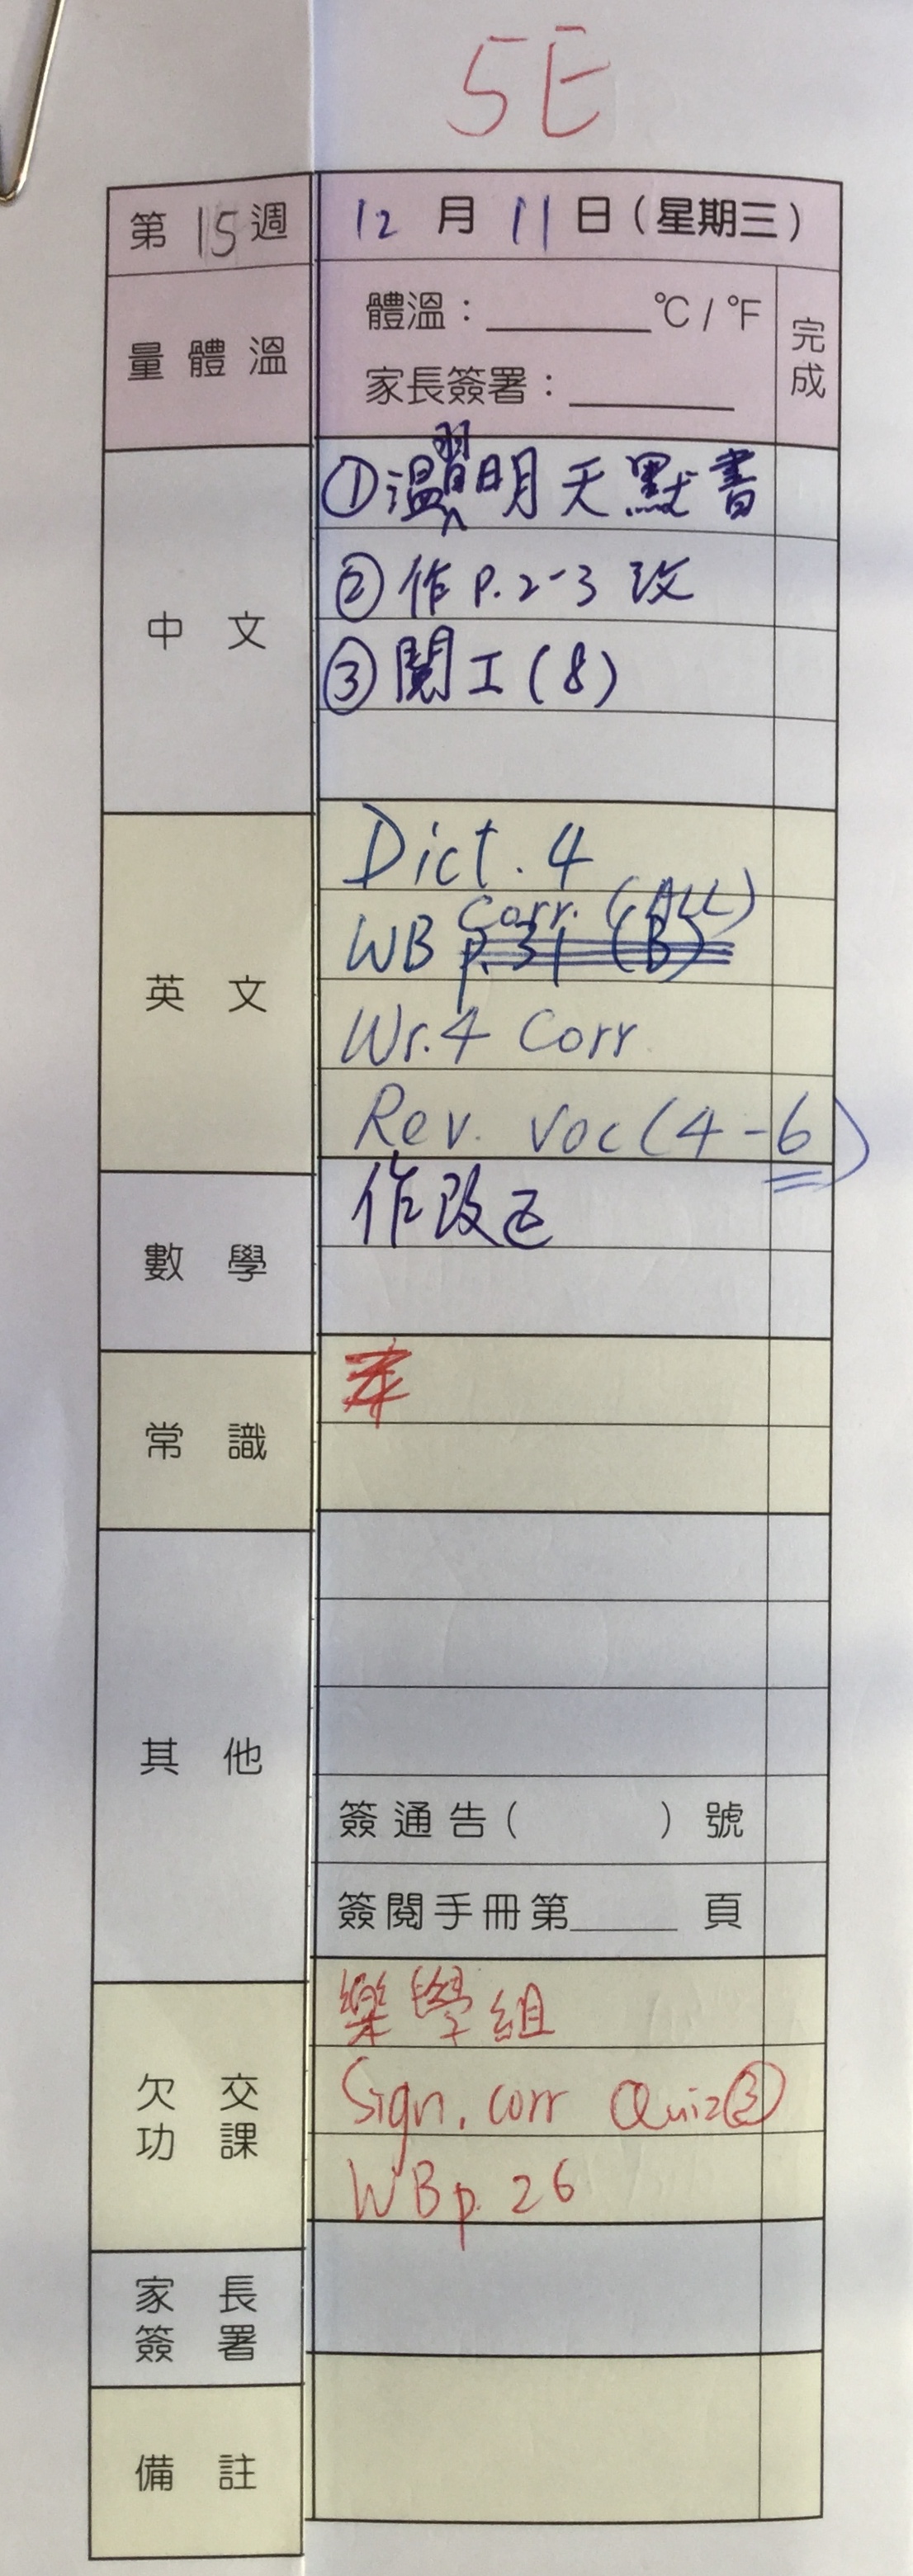 5E
第15週 12月11日(星期三)
量體溫 體溫：______°C / °F 完成
家長簽署：______
中文 ①溫習明天默書
②作P.2-3 改
③閱工(8)
英文 Dict. 4
WB Corr. (ALL)
Wr.4 Corr
Rev. voc (4-6)
數學 作改
常識
其他
簽通告( )號
簽閱手冊第______頁
欠交功課 樂學組
Sign. corr Quiz③
WB p. 26
家長簽署
備註